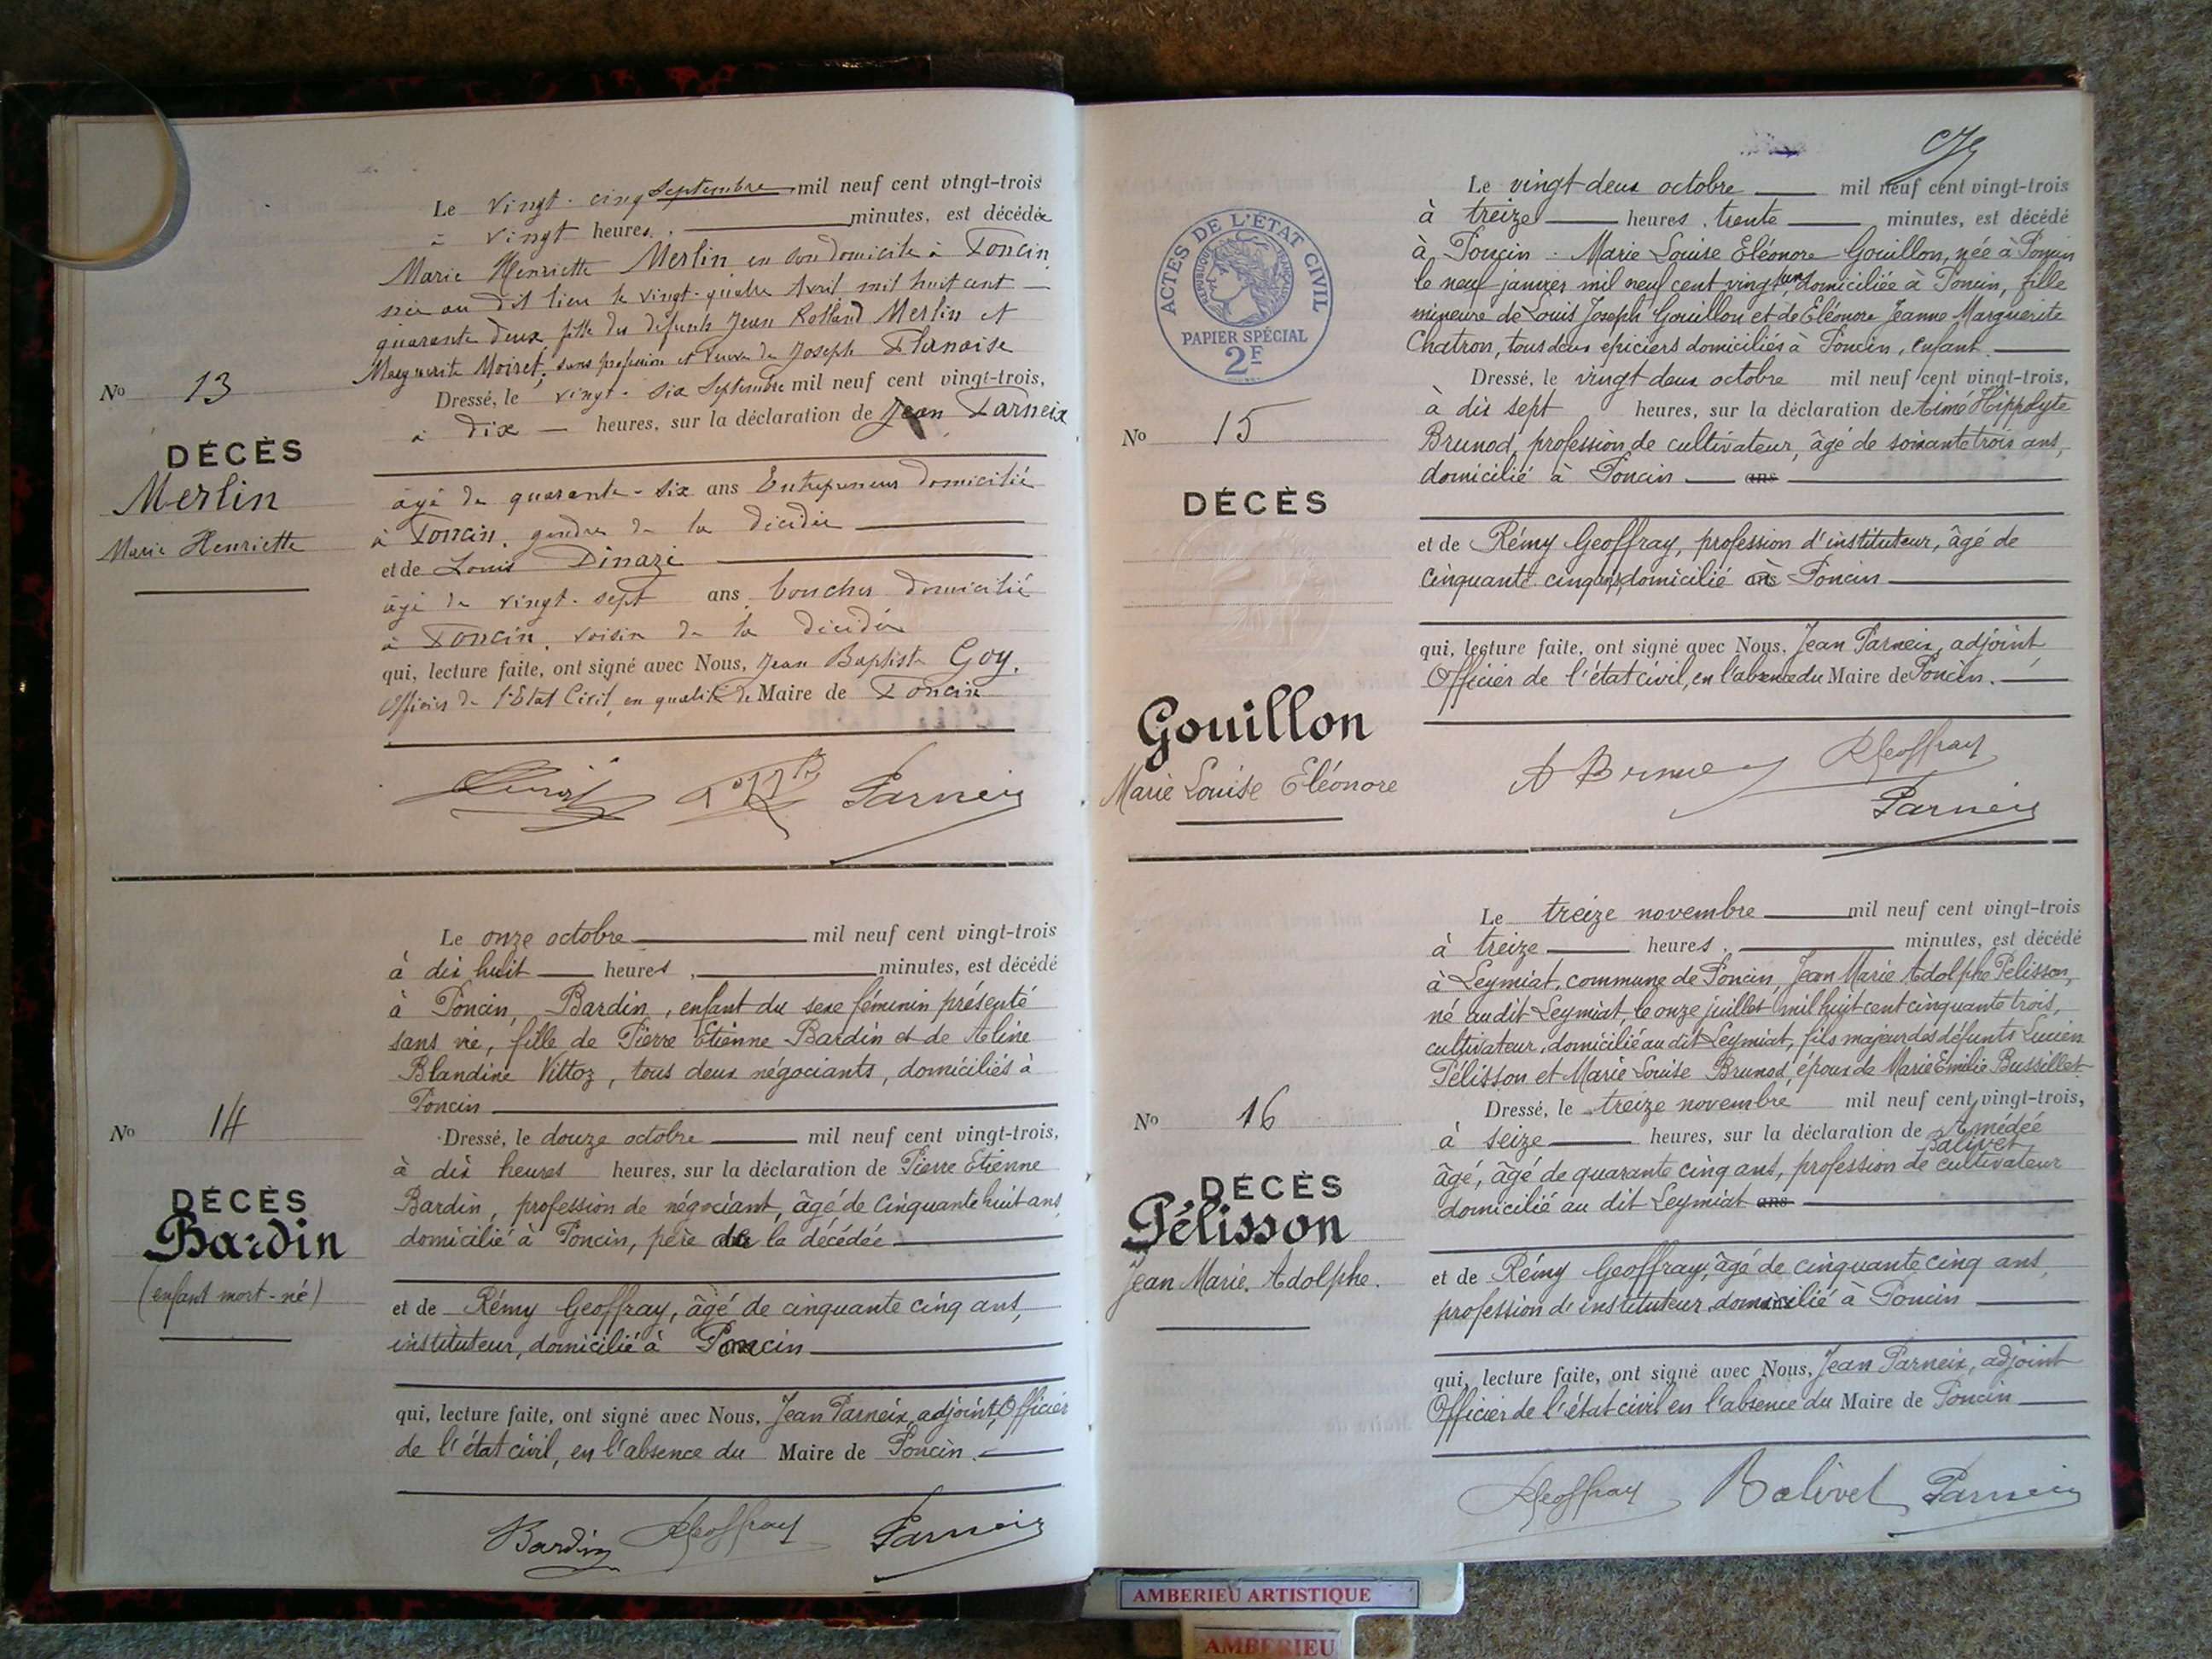 Le vingt-cinq septembre mil neuf cent vingt-trois
à vingt heures, minutes, est décédée
Marie Henriette Merlin en son domicile à Poncin
née au dit lieu le vingt-quatre Avril mil huit cent
quarante deux fille des défunts Jean Rolland Merlin et
Marguerite Moiret, sans profession et veuve de Joseph
No 13
Dressé, le vingt-six Septembre mil neuf cent vingt-trois,
à Dix heures, sur la déclaration de Jean Parneix
DÉCÈS
Merlin
Marie Henriette
âgé de quarante-six ans Entrepreneur domicilié
à Poncin, gendre de la décédée
et de Louis
âgé de vingt-sept ans, boucher domicilié
à Poncin, voisin de la décédée
qui, lecture faite, ont signé avec Nous, Jean Baptiste Goy,
Officier de l'Etat Civil, en qualité de Maire de Poncin
Parneix
Le onze octobre mil neuf cent vingt-trois
à dix huit heures, minutes, est décédé
à Poncin, Bardin, enfant du sexe féminin présenté
sans vie, fille de Pierre Etienne Bardin et de Aline
Blandine Vittoz, tous deux négociants, domiciliés à
Poncin
No 14
Dressé, le douze octobre mil neuf cent vingt-trois,
à dix heures heures, sur la déclaration de Pierre Etienne
DÉCÈS
Bardin
(enfant mort-né)
Bardin, profession de négociant, âgé de cinquante huit ans,
domicilié à Poncin, père de la décédée
et de Rémy Geoffray, âgé de cinquante cinq ans,
instituteur, domicilié à Poncin
qui, lecture faite, ont signé avec Nous, Jean Parneix, adjoint, Officier
de l'état civil, en l'absence du Maire de Poncin.
Bardin RGeoffray Parneix
ACTES DE L'ÉTAT CIVIL
RÉPUBLIQUE FRANÇAISE
PAPIER SPÉCIAL
2F
Le vingt deux octobre mil neuf cent vingt-trois
à treize heures, trente minutes, est décédé
à Poncin : Marie Louise Eléonore Gouillon, née à Poncin
le neuf janvier mil neuf cent vingt un, domiciliée à Poncin, fille
mineure de Louis Joseph Gouillon et de Eléonore Jeanne Marguerite
Chatron, tous deux épiciers domiciliés à Poncin, enfant
No 15
Dressé, le vingt deux octobre mil neuf cent vingt-trois,
à dix sept heures, sur la déclaration de Aimé Hippolyte
Brunod, profession de cultivateur, âgé de soixante trois ans,
domicilié à Poncin ans
DÉCÈS
Gouillon
Marie Louise Eléonore
et de Rémy Geoffray, profession d'instituteur, âgé de
cinquante cinq ans, domicilié à Poncin
qui, lecture faite, ont signé avec Nous, Jean Parneix, adjoint
Officier de l'état civil, en l'absence du Maire de Poncin.
RGeoffray
Parneix
Le treize novembre mil neuf cent vingt-trois
à treize heures, minutes, est décédé
à Leymiat, commune de Poncin, Jean Marie Adolphe Pélisson,
né audit Leymiat, le onze juillet mil huit cent cinquante trois,
cultivateur, domicilié au dit Leymiat, fils majeur des défunts Lucien
Pélisson et Marie Louise Brunod, époux de Marie Emilie Bussillet
No 16
Dressé, le treize novembre mil neuf cent vingt-trois,
à seize heures, sur la déclaration de Amédée
Balivet
âgé, âgé de quarante cinq ans, profession de cultivateur
domicilié au dit Leymiat ans
DÉCÈS
Pélisson
Jean Marie Adolphe.
et de Rémy Geoffray, âgé de cinquante cinq ans,
profession d'instituteur, domicilié à Poncin
qui, lecture faite, ont signé avec Nous, Jean Parneix, adjoint
Officier de l'état civil en l'absence du Maire de Poncin
RGeoffray Balivet Parneix
AMBERIEU ARTISTIQUE
AMBERIEU